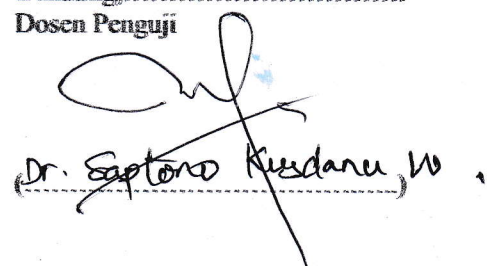 Dosen Penguji
(Dr. Saptono Kusdanu W.)